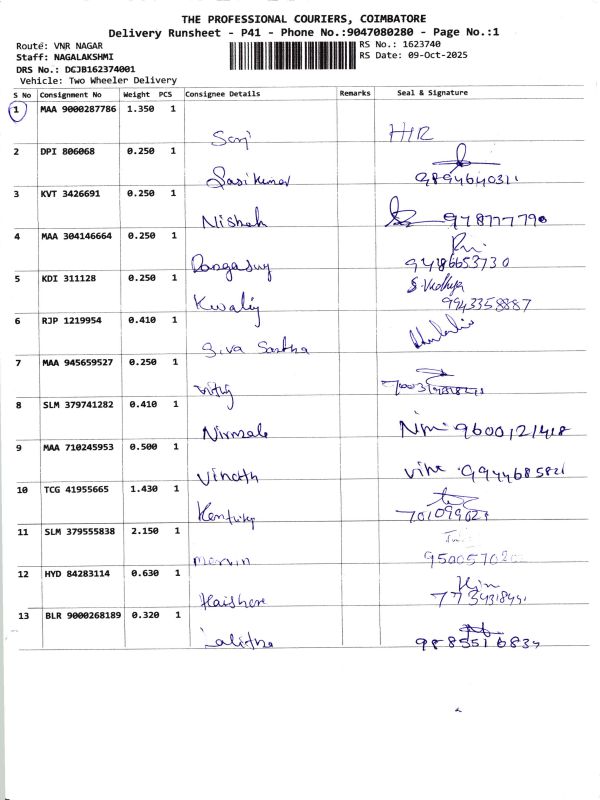 THE PROFESSIONAL COURIERS, COIMBATORE
Delivery Runsheet - P41 - Phone No.:9047080280 - Page No.:1
Route: VNR NAGAR
RS No.: 1623740
Staff: NAGALAKSHMI
RS Date: 09-Oct-2025
DRS No.: DCJB162374001
Vehicle: Two Wheeler Delivery
S No Consignment No Weight PCS Consignee Details Remarks Seal & Signature
1 MAA 9000287786 1.350 1
2 DPI 806068 0.250 1
Sasikumar 9894640311
3 KVT 3426691 0.250 1
4 MAA 304146664 0.250 1
Rangasuy 9486653730
5 KDI 311128 0.250 1
S.Vidhya
9943358887
6 RJP 1219954 0.410 1
Siva Santha
7 MAA 945659527 0.250 1
8 SLM 379741282 0.410 1
Nirmala 9600121418
9 MAA 710245953 0.500 1
Vinoth 9944685821
10 TCG 41955665 1.430 1
11 SLM 379555838 2.150 1
Mervin
12 HYD 84283114 0.630 1
13 BLR 9000268189 0.320 1
Lalitha